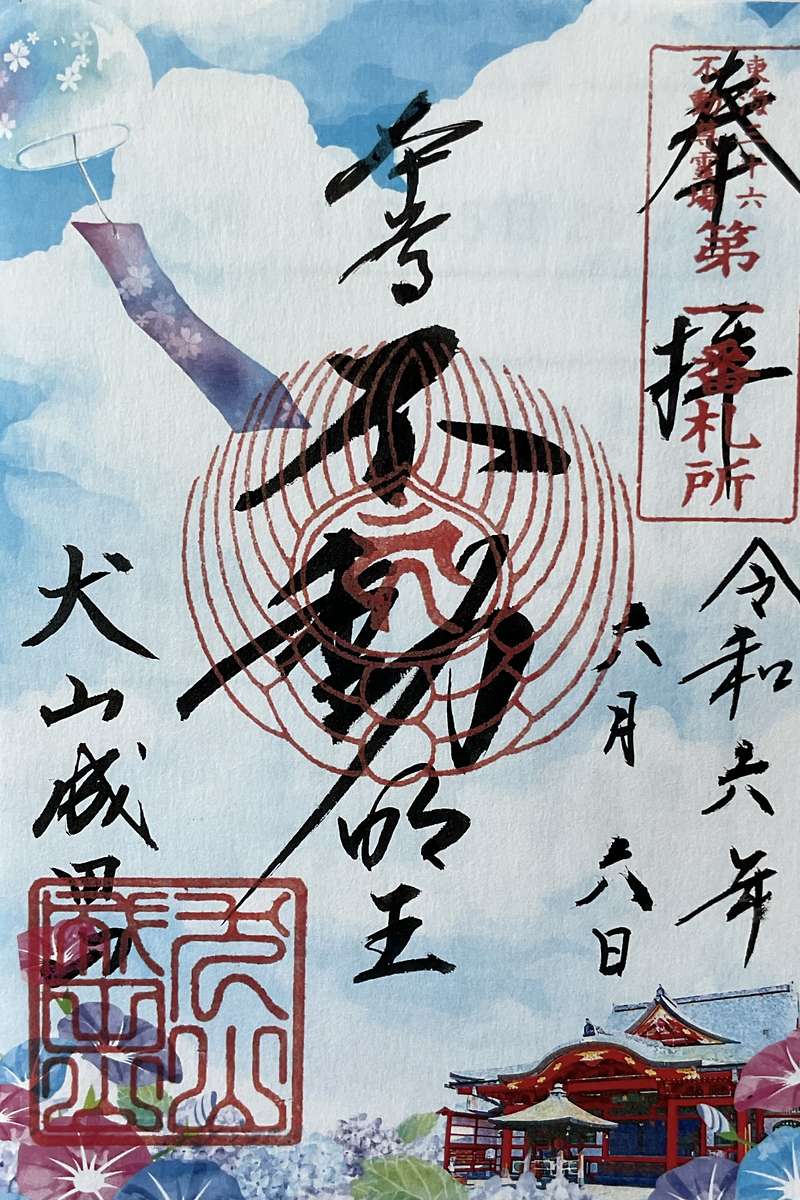 奉拝
東海三十六
不動尊霊場
第一番札所
令和六年
六月六日
本尊
不動
明王
犬山成田山
犬山
成田山